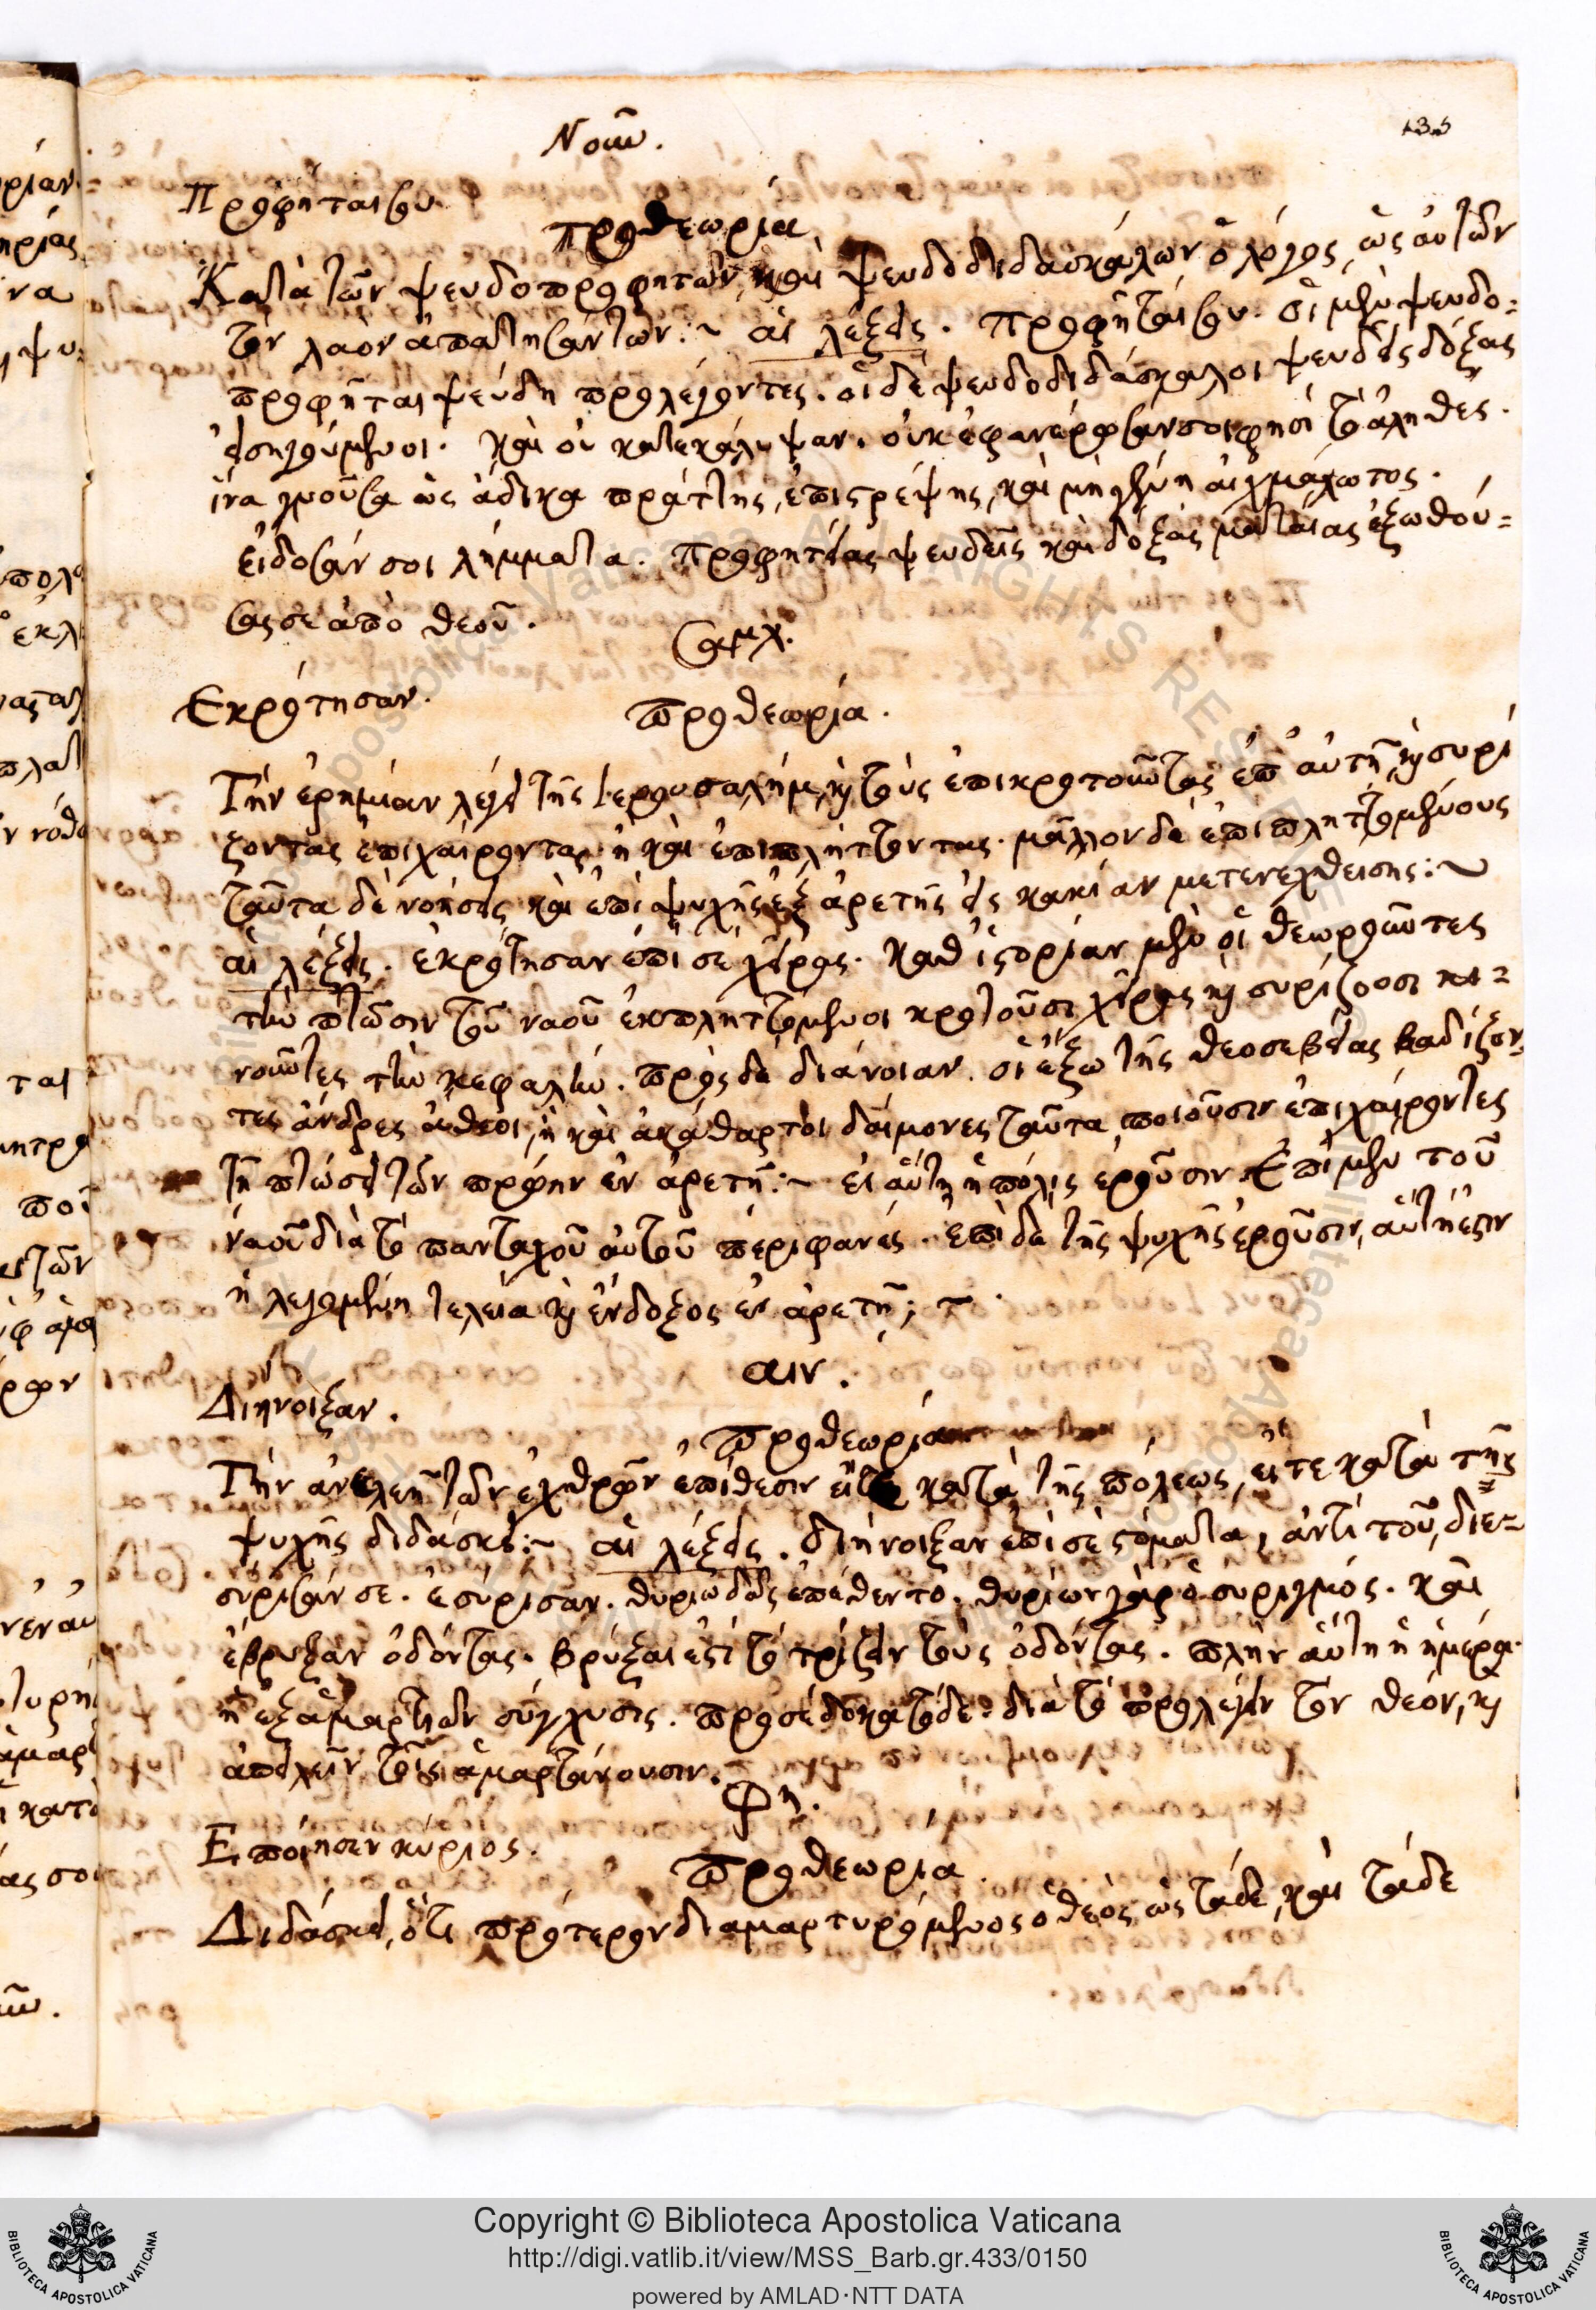 135
Νοῦν.
Προφῆται σου.
προθεωρία
Κατὰ τῶν ψευδοπροφητῶν, καὶ ψευδοδιδασκάλων ὁ λόγος, ὡς αὐτῶν
τὸν λαὸν ἀπατησάντων:~ αἱ λέξεις. Προφῆταί σου. οἱ μὲν ψευδο=
προφῆται ψευδῆ προλέγοντες. οἱ δὲ ψευδοδιδάσκαλοι ψευδεῖς δόξας
εἰσηγούμενοι. καὶ οὐ κατεκάλυψαν. οὐκ ἐφανέρωσάν σοι φησὶ τὸ ἀληθές.
ἵνα γνοῦσα ὡς ἄδικα πράττεις, ἐπιστρέψῃς, καὶ μὴ γένῃ αἰχμάλωτος.
εἴδοσάν σοι λήμματα. προφητείας ψευδεῖς καὶ δόξας ματαίας ἐξωθού=
σας σε ἀπὸ θεοῦ.
Σαμχ.
Εκρότησαν.
προθεωρία.
Τὴν ἐρημίαν λέγει τῆς Ιερουσαλήμ, καὶ τοὺς ἐπικροτοῦντας ἐπ' αὐτῇ, καὶ συρί
ζοντας ἐπιχαίροντας, ἢ καὶ ἐπιπλήττοντας. μᾶλλον δὲ ἐπιπληττομένους
ταῦτα δὲ νοήσεις καὶ ἐπὶ ψυχῆς ἐξ ἀρετῆς εἰς κακίαν μετενεχθείσης:~
αἱ λέξεις. ἐκρότησαν ἐπὶ σὲ χεῖρας. καθ' ἱστορίαν μὲν οἱ θεωροῦντες
τὴν πτῶσιν τοῦ ναοῦ ἐκπληττόμενοι κροτοῦσι χεῖρας καὶ συρίζουσι κι=
νοῦντες τὴν κεφαλήν. πρὸς δὲ διάνοιαν. οἱ ἔξω τῆς θεοσεβείας βαδίζον
τες ἄνδρες ἄθεοι, ἢ καὶ ἀκάθαρτοι δαίμονες ταῦτα ποιοῦσιν ἐπιχαίροντες
τῇ πτώσει τῶν πρώην ἐν ἀρετῇ:~ εἰ αὕτη ἡ πόλις ἐροῦσιν. Ἐπὶ μὲν τοῦ
ναοῦ διὰ τὸ πανταχοῦ αὐτοῦ περιφανές. ἐπὶ δὲ τῆς ψυχῆς ἐροῦσιν, αὕτη ἐστιν
ἡ λεγομένη τελεία καὶ ἔνδοξος ἐν ἀρετῇ;
αιν.
Διήνοιξαν.
προθεωρία
Τὴν ἀνελεῆ τῶν ἐχθρῶν ἐπίθεσιν εἴτε κατὰ τῆς πόλεως, εἴτε κατὰ τῆς
ψυχῆς διδάσκει:~ αἱ λέξεις. διήνοιξαν ἐπὶ σὲ στόματα, ἀντὶ τοῦ, διε=
σύρισάν σε. ἐσύρισαν. θυριωδῶς ἐπέθεντο. θυρίων γὰρ ὁ συριγμός. καὶ
ἔβρυξαν ὀδόντας. βρύξαι ἐστὶ τὸ τρίζειν τοὺς ὀδόντας. πλὴν αὕτη ἡ ἡμέρα.
ἡ ἐξ ἁμαρτιῶν σύγχυσις. προσεδόκα τόδε. διὰ τὸ προλέγειν τὸν θεόν, καὶ
ἀπειλεῖν τοῖς ἁμαρτάνουσιν.
Φη.
Εποίησεν κύριος.
προθεωρία.
Διδάσκει, ὅτι πρότερον διαμαρτυρόμενος ὁ θεὸς ὡς τάδε, καὶ τάδε